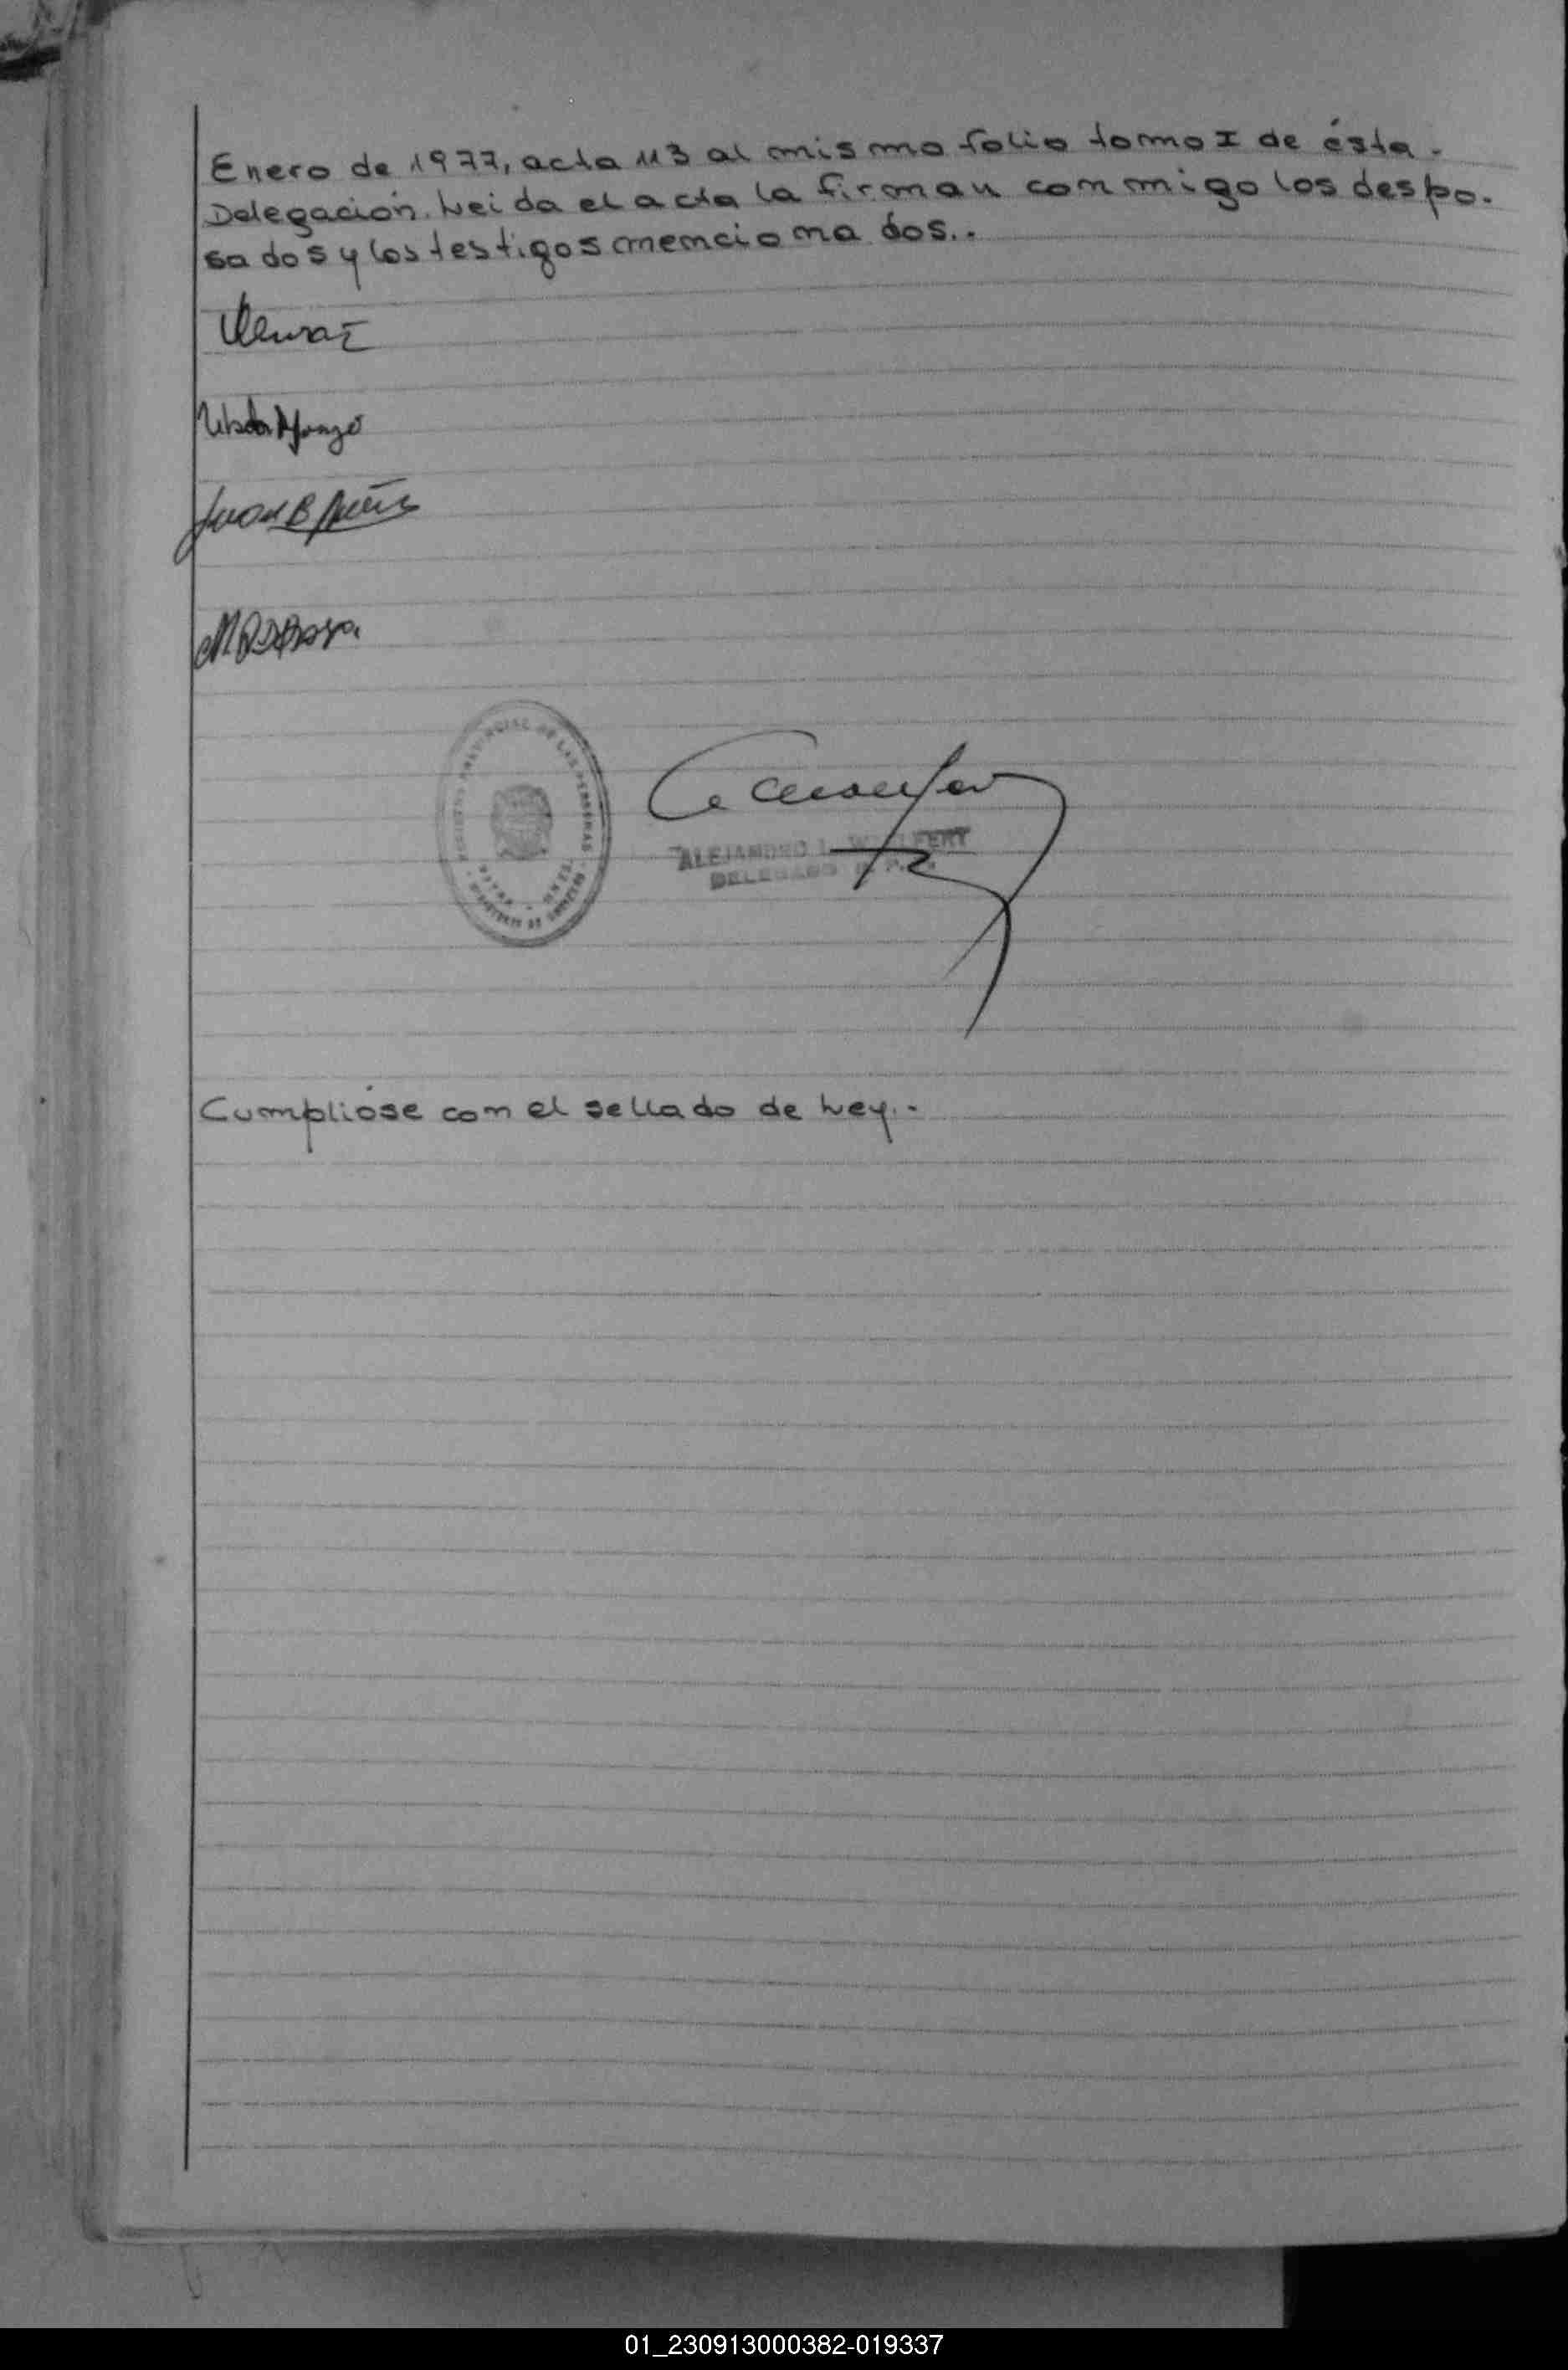 Enero de 1977, acta 113 al mismo folio tomo I de ésta.-
Delegación. Leida el acta la firman conmigo los despo-
sados y los testigos mencionados..-
Juan B
REGISTRO PROVINCIAL DE LAS PERSONAS
ALEJANDRO L.
DELEGADO
Cumplióse con el sellado de Ley.-
01_230913000382-019337